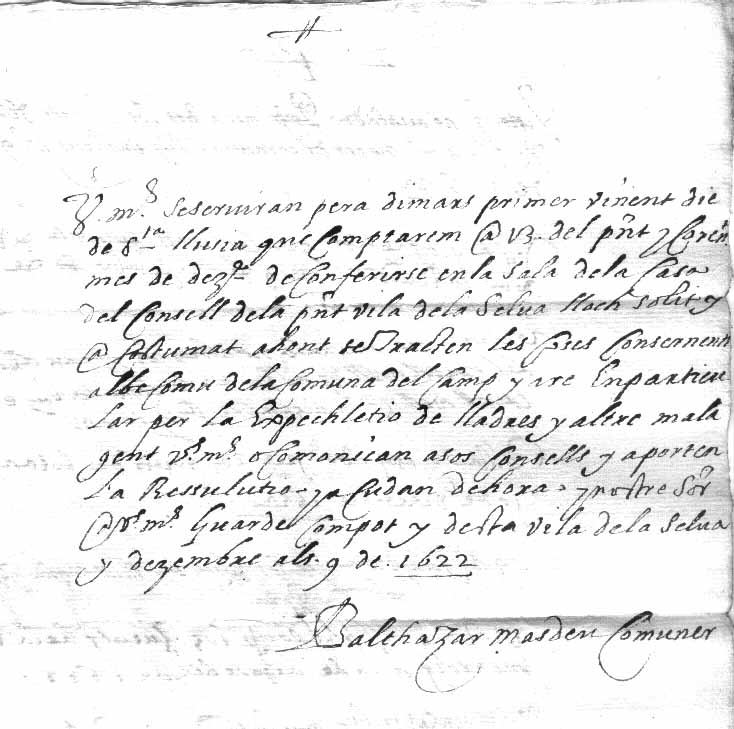 V.s m.s se serviran pera dimars primer vinent die
de S.ta llusia que Comptarem @ 13. del p̃nt y Corẽn
mes de dez.e de Conferirse en la Sala de la Casa
del Consell dela p̃nt vila dela Selva lloch solit y
@ Costumat ahont se tracten les coses Consernents
al be Comu dela Comuna del Camp y are En particu
lar per la Expechletio de lladres y altre mala
gent v.s m.s o Comonican a sos Consells y aporten
La Ressulutio y a Cudan de hora y nostre Sõr
@ v.s m.s Guarde Com pot y desta vila dela Selva
y dezembre als 9 de 1622
Balthazar masdeu Comuner